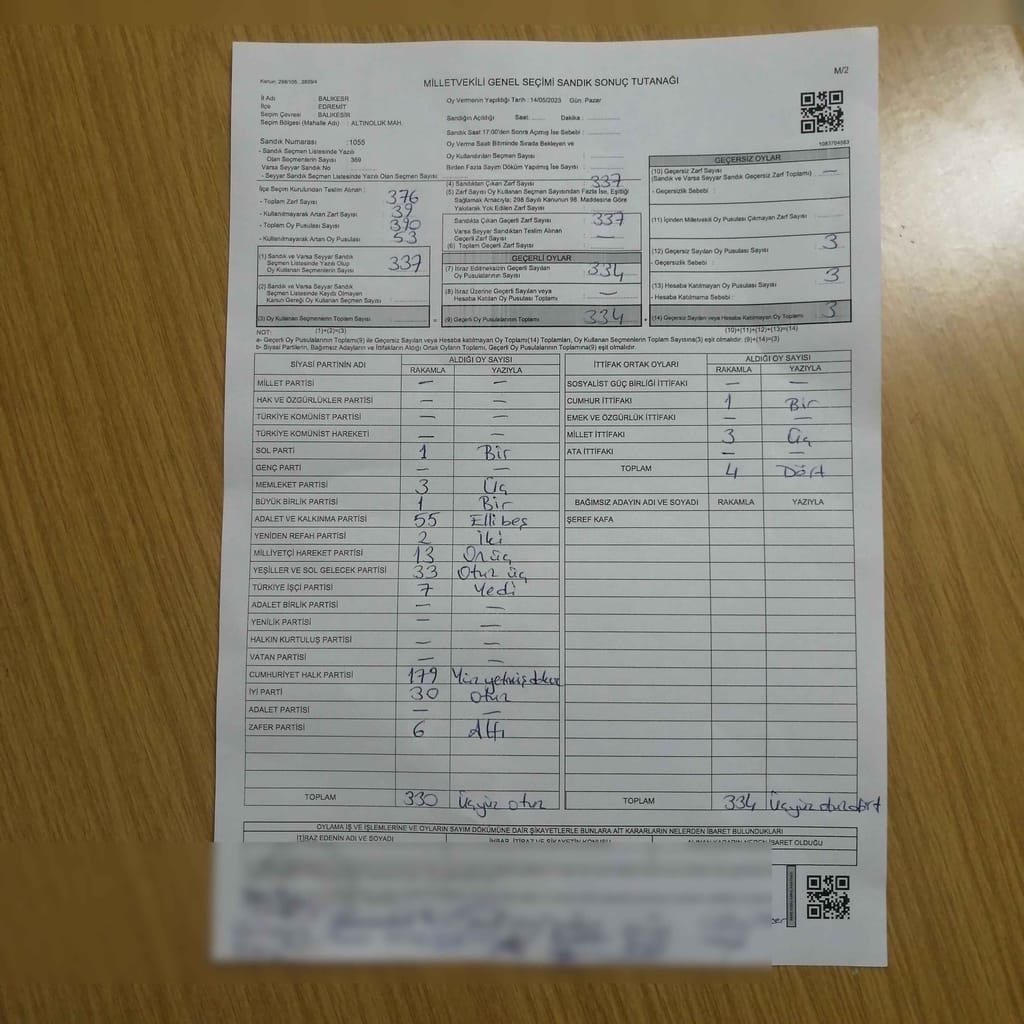 Kanun: 298/105 , 2839/4
M/2
MİLLETVEKİLİ GENEL SEÇİMİ SANDIK SONUÇ TUTANAĞI
İl Adı : BALIKESR
İlçe EDREMİT
Seçim Çevresi : BALIKESİR
Seçim Bölgesi (Mahalle Adı) : ALTINOLUK MAH.
Sandık Numarası :1055
- Sandık Seçmen Listesinde Yazılı
Olan Seçmenlerin Sayısı : 369
Varsa Seyyar Sandık No
- Seyyar Sandık Listesinde Yazılı Olan Seçmen Sayısı:
Oy Vermenin Yapıldığı Tarih : 14/05/2023 Gün Pazar
Sandığın Açıldığı Saat: Dakika :
Sandık Saat 17:00'den Sonra Açılmış İse Sebebi :
Oy Verme Saati Bitiminde Sırada Bekleyen ve
Oy Kullandırılan Seçmen Sayısı
Birden Fazla Sayım Döküm Yapılmış İse Sayısı :
1083704563
İlçe Seçim Kurulundan Teslim Alınan :
- Toplam Zarf Sayısı 376
- Kullanılmayarak Artan Zarf Sayısı 39
- Toplam Oy Pusulası Sayısı 390
- Kullanılmayarak Artan Oy Pusulası 53
(1) Sandık ve Varsa Seyyar Sandık
Seçmen Listesinde Yazılı Olup
Oy Kullanan Seçmenlerin Sayısı 337
(2) Sandık ve Varsa Seyyar Sandık
Seçmen Listesinde Kaydı Olmayan
Kanun Gereği Oy Kullanan Seçmen Sayısı
(3) Oy Kullanan Seçmenlerin Toplam Sayısı
(4) Sandıktan Çıkan Zarf Sayısı 337
(5) Zarf Sayısı Oy Kullanan Seçmen Sayısından Fazla İse, Eşitliği
Sağlamak Amacıyla; 298 Sayılı Kanunun 98. Maddesine Göre
Yakılarak Yok Edilen Zarf Sayısı
Sandıkta Çıkan Geçerli Zarf Sayısı 337
Varsa Seyyar Sandıktan Teslim Alınan
Geçerli Zarf Sayısı —
(6) Toplam Geçerli Zarf Sayısı
GEÇERLİ OYLAR
(7) İtiraz Edilmeksizin Geçerli Sayılan
Oy Pusulalarının Sayısı 334
(8) İtiraz Üzerine Geçerli Sayılan veya
Hesaba Katılan Oy Pusulası Toplamı —
(9) Geçerli Oy Pusulalarının Toplamı 334
GEÇERSİZ OYLAR
(10) Geçersiz Zarf Sayısı —
(Sandık ve Varsa Seyyar Sandık Geçersiz Zarf Toplamı)
- Geçersizlik Sebebi :
(11) İçinden Milletvekili Oy Pusulası Çıkmayan Zarf Sayısı
(12) Geçersiz Sayılan Oy Pusulası Sayısı 3
- Geçersizlik Sebebi :
(13) Hesaba Katılmayan Oy Pusulası Sayısı 3
- Hesaba Katılmama Sebebi :
(14) Geçersiz Sayılan veya Hesaba Katılmayan Oy Toplamı 3
NOT: (1)+(2)=(3) (10)+(11)+(12)+(13)=(14)
a- Geçerli Oy Pusulaları Toplamı(9) ile Geçersiz Sayılan veya Hesaba Katılmayan Oy Toplamı(14) Toplamları, Oy Kullanan Seçmenlerin Toplam Sayısına(3) eşit olmalıdır. (9)+(14)=(3)
b- Siyasi Partilerin, Bağımsız Adayların ve İttifakların Aldığı Ortak Oyların Toplamı, Geçerli Oy Pusulalarının Toplamına(9) eşit olmalıdır.
SİYASİ PARTİNİN ADI ALDIĞI OY SAYISI
RAKAMLA YAZIYLA
MİLLET PARTİSİ — —
HAK VE ÖZGÜRLÜKLER PARTİSİ — —
TÜRKİYE KOMÜNİST PARTİSİ — —
TÜRKİYE KOMÜNİST HAREKETİ — —
SOL PARTİ 1 Bir
GENÇ PARTİ — —
MEMLEKET PARTİSİ 3 Üç
BÜYÜK BİRLİK PARTİSİ 1 Bir
ADALET VE KALKINMA PARTİSİ 55 Elli beş
YENİDEN REFAH PARTİSİ 2 İki
MİLLİYETÇİ HAREKET PARTİSİ 13 On üç
YEŞİLLER VE SOL GELECEK PARTİSİ 33 Otuz üç
TÜRKİYE İŞÇİ PARTİSİ 7 Yedi
ADALET BİRLİK PARTİSİ — —
YENİLİK PARTİSİ — —
HALKIN KURTULUŞ PARTİSİ — —
VATAN PARTİSİ — —
CUMHURİYET HALK PARTİSİ 179 Yüz yetmiş dokuz
İYİ PARTİ 30 Otuz
ADALET PARTİSİ — —
ZAFER PARTİSİ 6 Altı
TOPLAM 330 Üçyüz otuz
İTTİFAK ORTAK OYLARI ALDIĞI OY SAYISI
RAKAMLA YAZIYLA
SOSYALİST GÜÇ BİRLİĞİ İTTİFAKI — —
CUMHUR İTTİFAKI 1 Bir
EMEK VE ÖZGÜRLÜK İTTİFAKI — —
MİLLET İTTİFAKI 3 Üç
ATA İTTİFAKI — —
TOPLAM 4 Dört
BAĞIMSIZ ADAYIN ADI VE SOYADI RAKAMLA YAZIYLA
ŞEREF KAFA
TOPLAM 334 Üçyüz otuzdört
OYLAMA İŞ VE İŞLEMLERİNE VE OYLARIN SAYIM DÖKÜMÜNE DAİR ŞİKAYETLERLE BUNLARA AİT KARARLARIN NELERDEN İBARET BULUNDUKLARI
İTİRAZ EDENİN ADI VE SOYADI İHBAR, İTİRAZ VE ŞİKAYETİN KONUSU ALINAN KARARIN NEDEN İBARET OLDUĞU